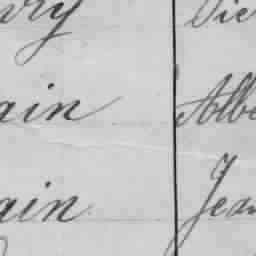 vry Vic
ain Albe
ain Jean